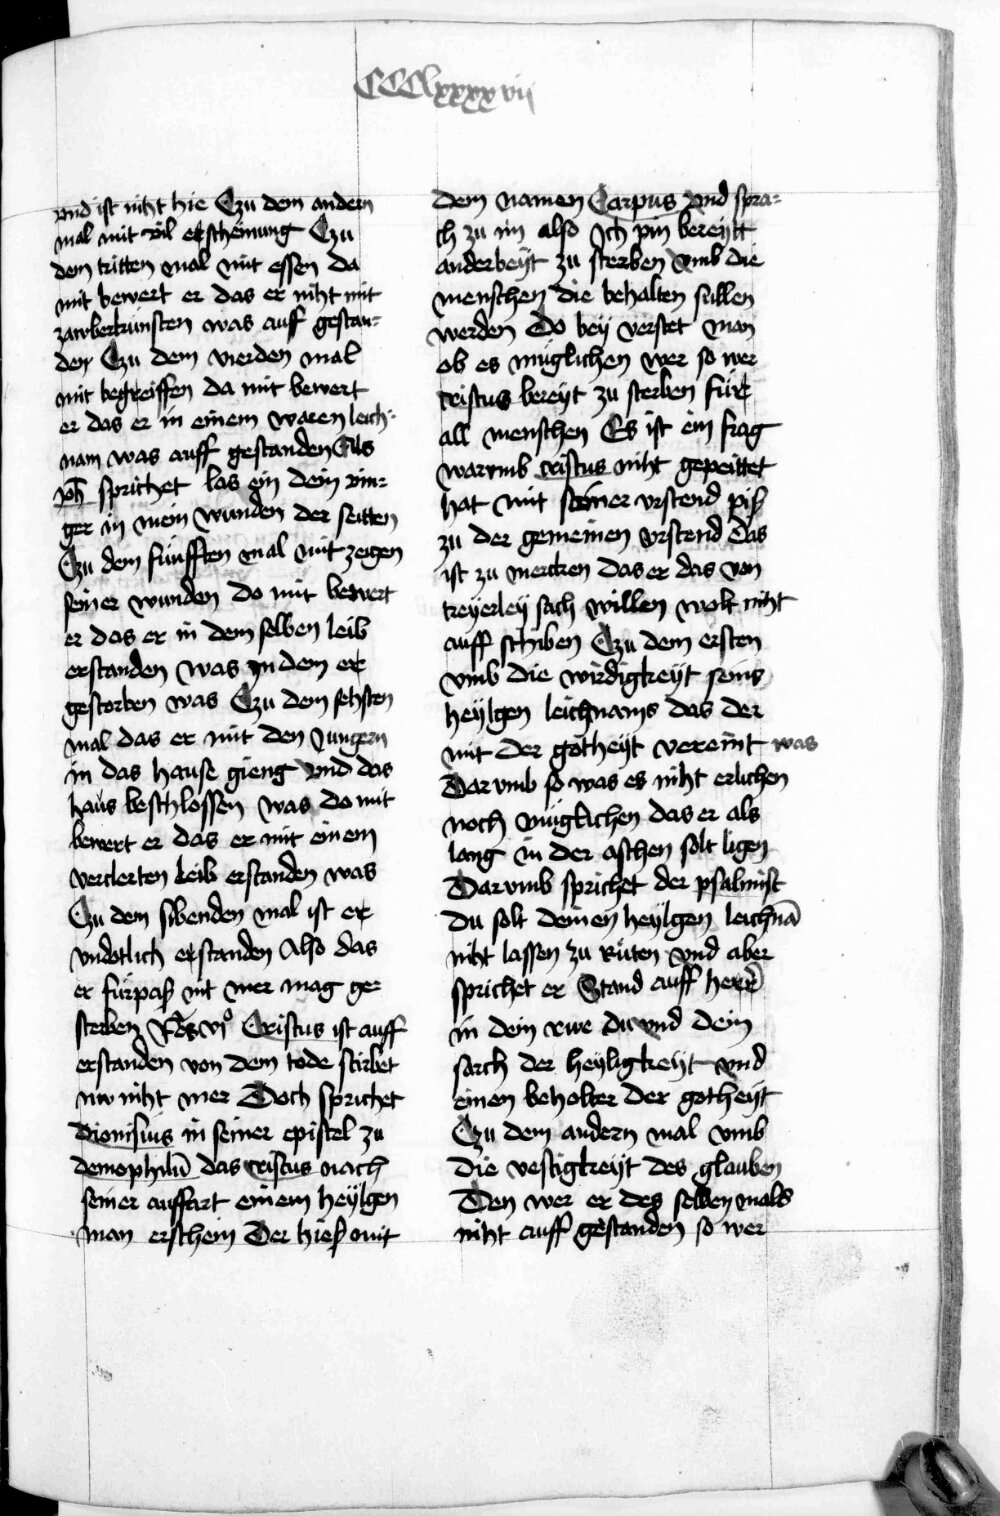 CCClxxxxvij
vnd ist niht hie Czu dem andern
mal mit vil erscheinung Czu
dem tritten mal mit essen da
mit bewert er das er niht mit
zawberkunsten was auff gestan-
den Czu dem vierden mal
mit begreiffen da mit bewert
er das er in einem waren leich-
nam was auff gestanden Als
joh sprichet las ein dein vin-
ger in mein wunden der seitten
Czu dem fünfften mal mit zeigen
seiner wunden do mit bewert
er das er in dem selben leib
erstanden was jn dem er
gestorben was Czu dem sehsten
mal das er mit den Jungern
in das hause gieng vnd das
haus beschlossen was do mit
bewert er das er mit einem
verclerten leib erstanden was
Czu dem sibenden mal ist er
vndotlich erstanden Also das
er fürpaß nit mer mag ge-
sterben vjº Cristus ist auff
erstanden von dem tode stirbet
nw niht mer Doch sprichet
dionisius in seiner epistel zu
demophilū das cristus nach
seiner auffart einem heÿlgen
man erschein Der hieß mit
dem namen Carpus vnd spra-
ch zu im also Jch pin bereÿtt
anderbeÿt zu sterben vmb die
menschen die behalten sullen
werden Do beÿ verstet man
ob es müglichen wer so wer
cristus bereÿt zu sterben für
all menschen Es ist ein frag
warvmb cristus niht gepeittet
hat mit seiner vrstend piß
zu der gemeinen vrstend Das
ist zu mercken das er das von
treÿerleÿ sach willen wolt niht
auff schiben Czu dem ersten
vmb die wirdigkeÿt seins
heÿlgen leichnams das der
mit der gotheÿt vereint was
Darvmb so was es niht erlichen
noch müglichen das er als
lang in der aschen solt ligen
Darvmb sprichet der psalmist
Du solt deinen heÿlgen leichnā
niht lassen zu rüten vnd aber
sprichet er Stand auff herr
in dein rwe du vnd dein
sarch der heÿligkeÿt vnd
einen behalter der gotheÿt
Czu dem andern mal vmb
die vestigkeÿt des glauben
Den wer er des selben mals
niht auff gestanden so wer